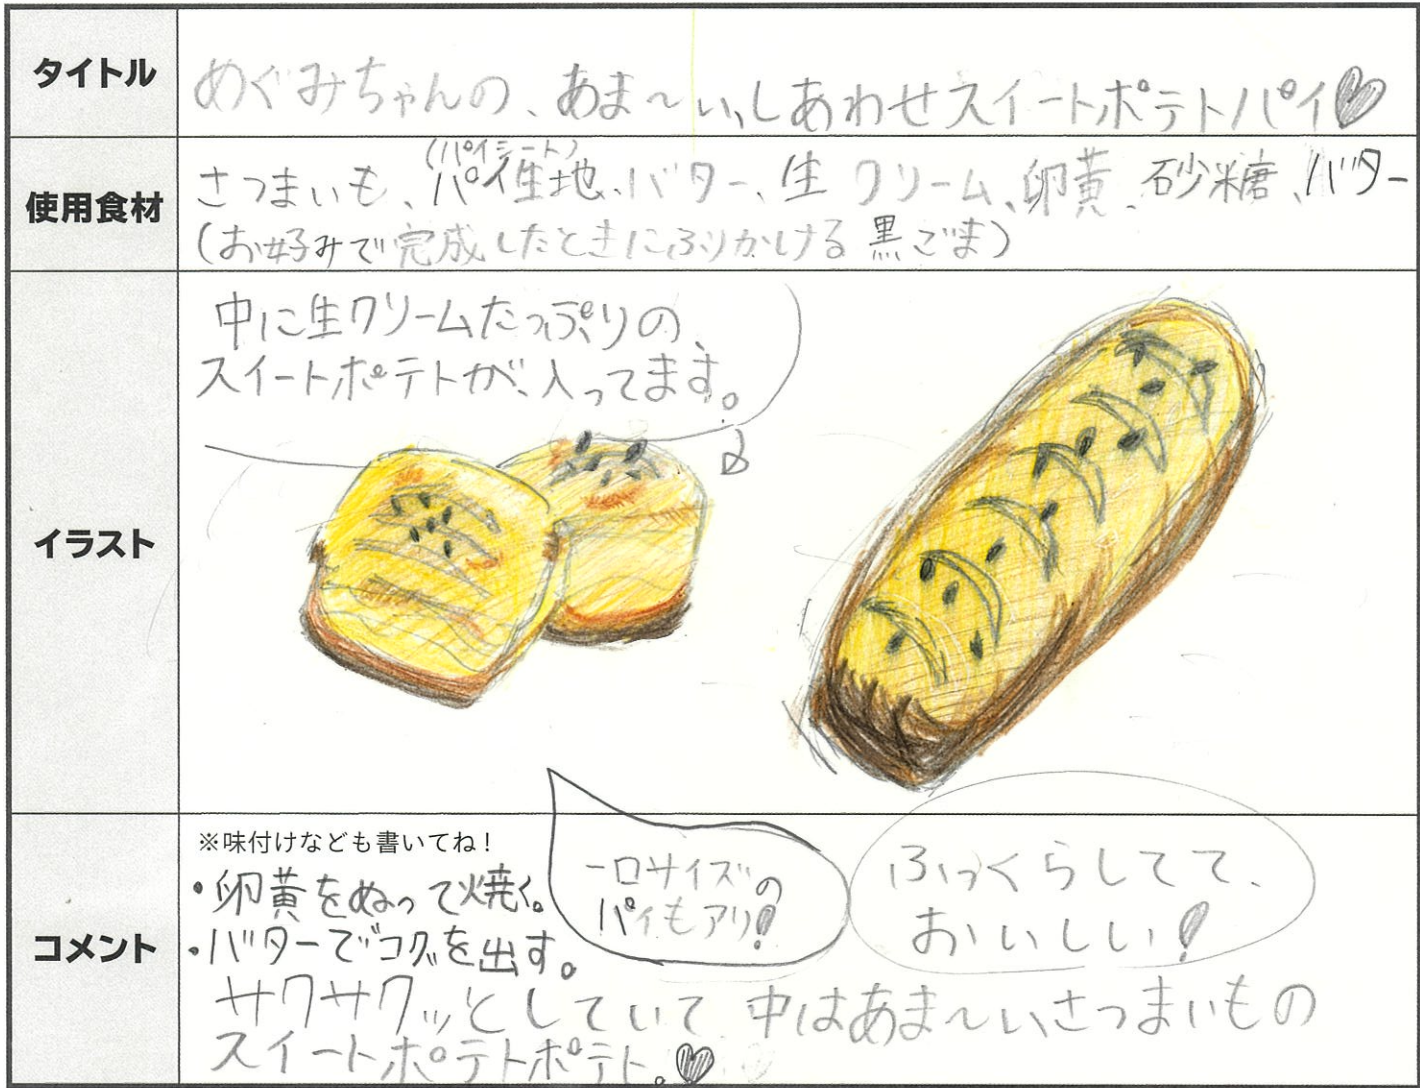 タイトル
めぐみちゃんの、あま〜い、しあわせスイートポテトパイ♥
使用食材
(パイシート)
さつまいも、パイ生地、バター、生クリーム、卵黄、砂糖、バター
(お好みで完成したときにふりかける黒ごま)
イラスト
中に生クリームたっぷりの、
スイートポテトが、入ってます。
コメント
※味付けなども書いてね!
・卵黄をぬって焼く。
・バターでコクを出す。
一口サイズの
パイもアリ!
ふっくらしてて、
おいしい!
サクサクッとしていて中はあま〜いさつまいもの
スイートポテトポテト。♥